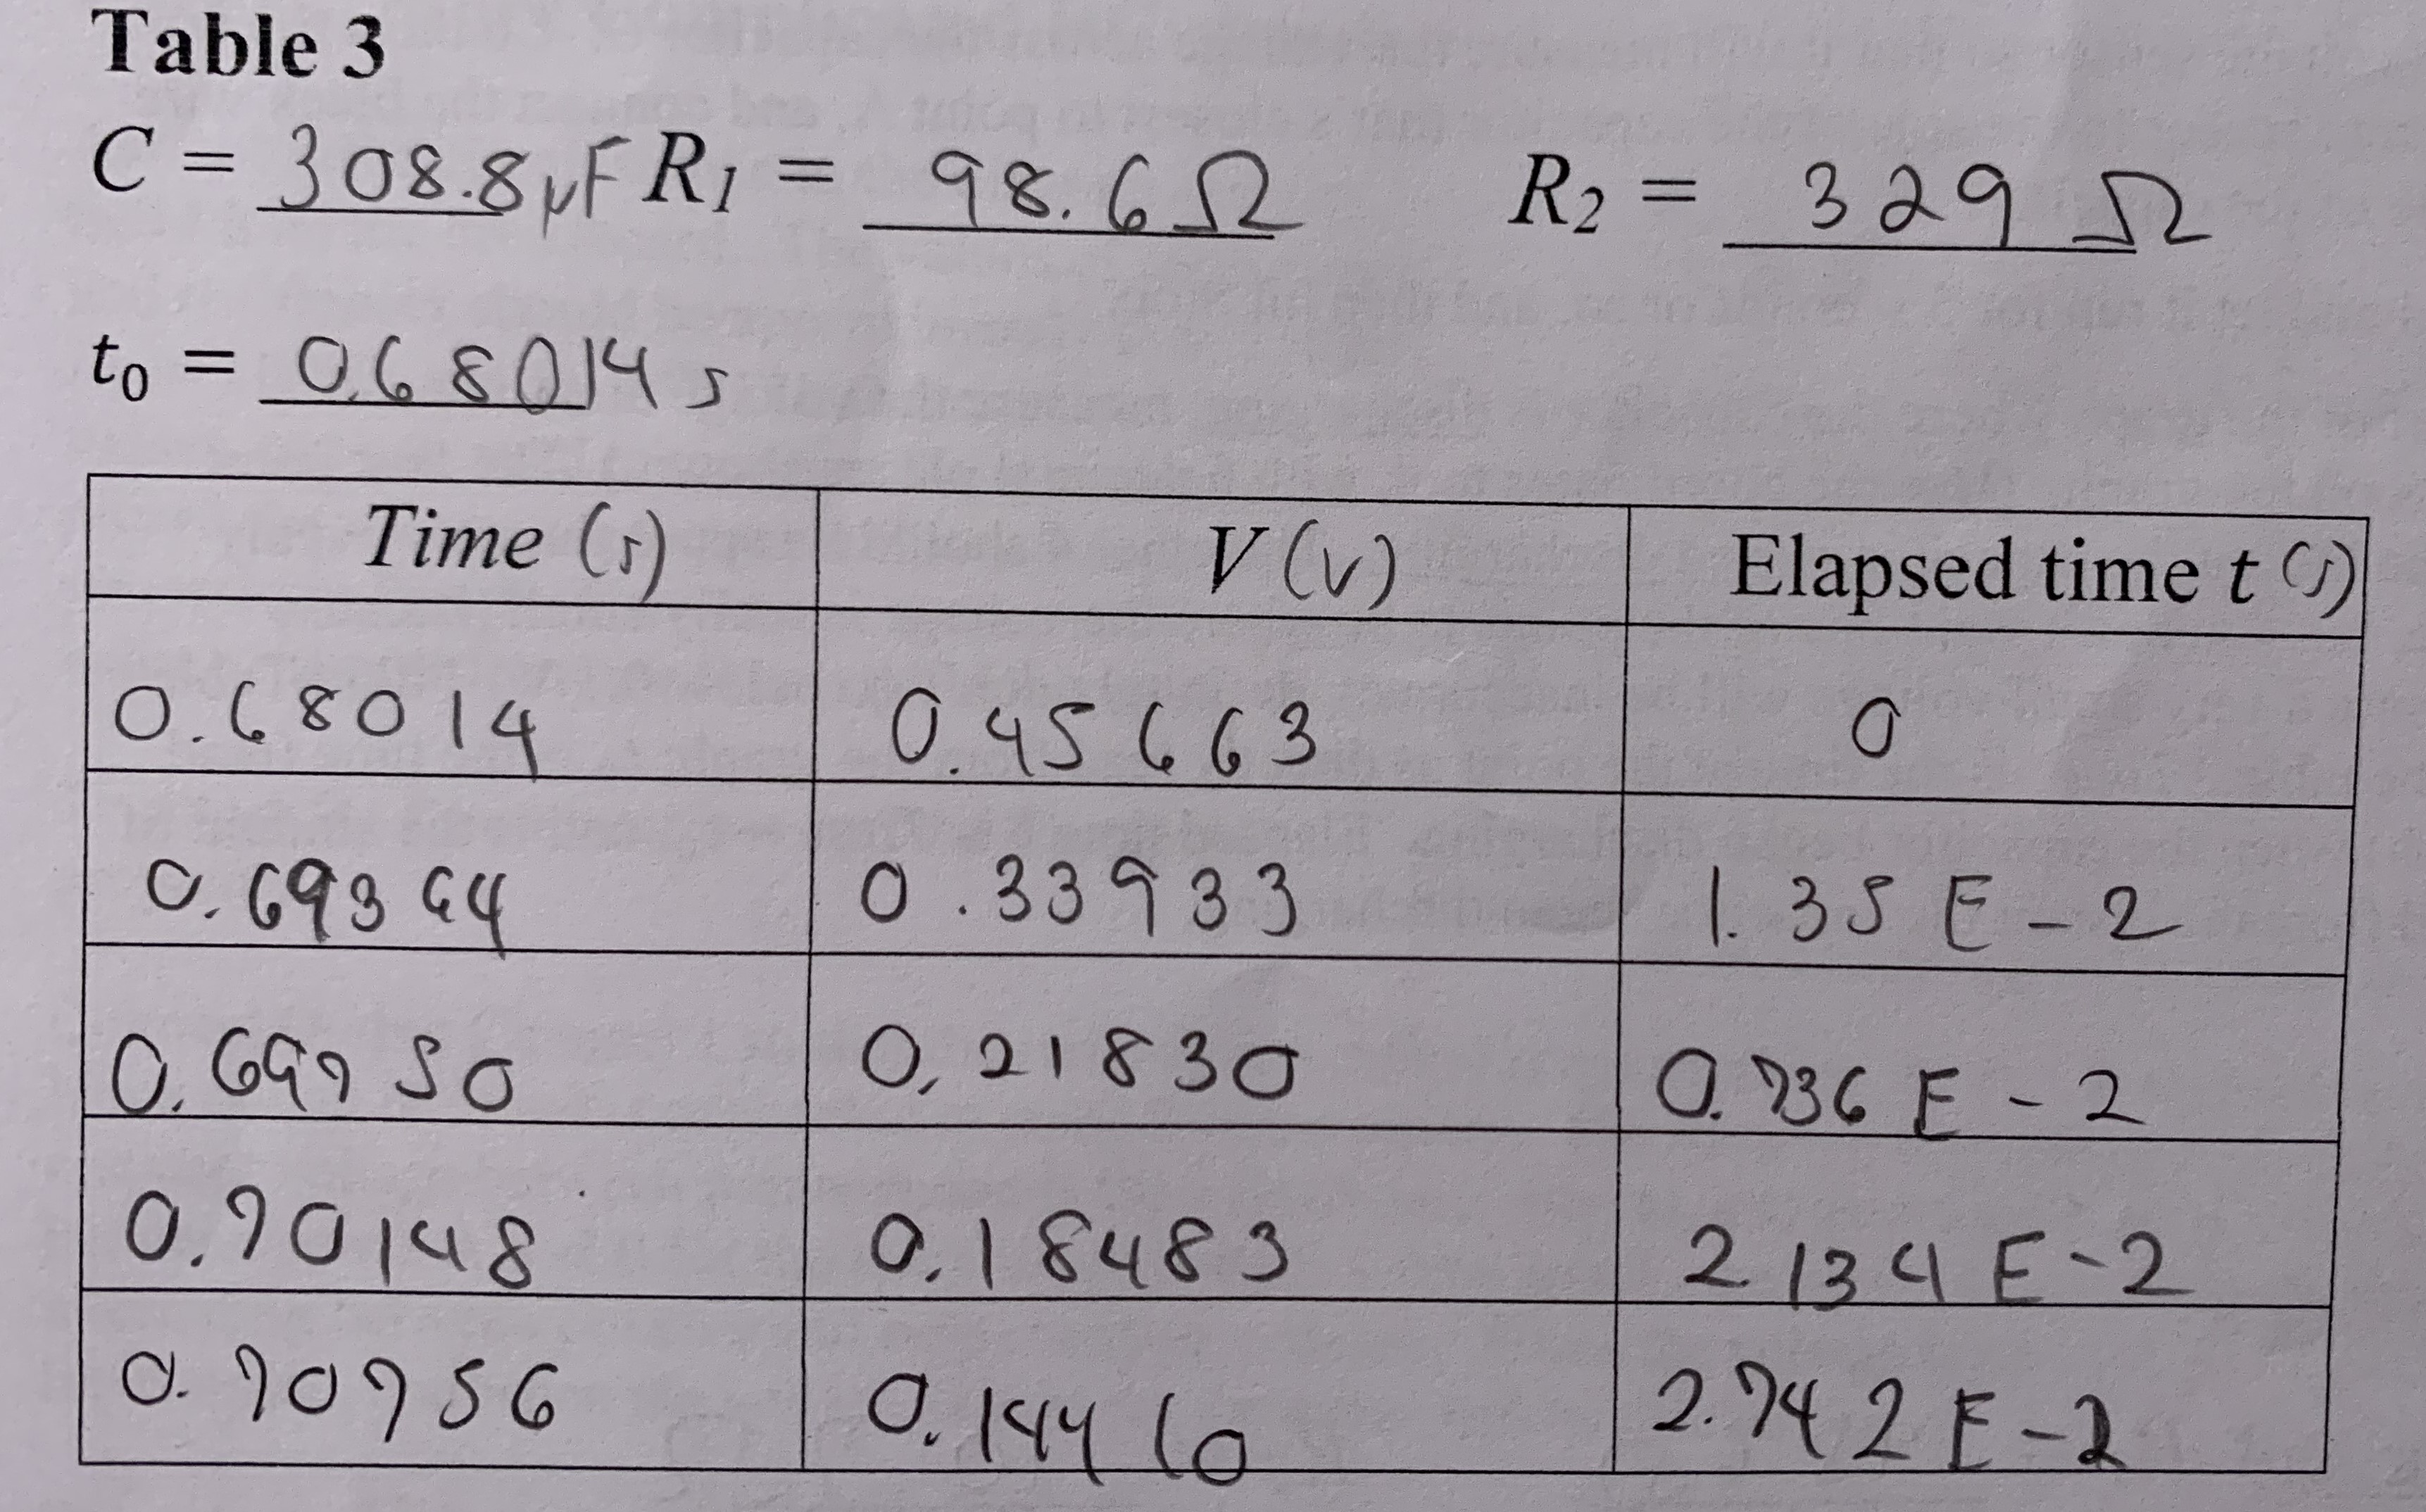 Table 3
C = 308.8 μF R1 = 98.6 Ω R2 = 329 Ω
t0 = 0.68014 s
Time (s) V (v) Elapsed time t (s)
0.68014 0.45663 0
0.69364 0.33933 1.35 E-2
0.69750 0.21830 0.736 E-2
0.70148 0.18483 2.134 E-2
0.70756 0.14460 2.742 E-2